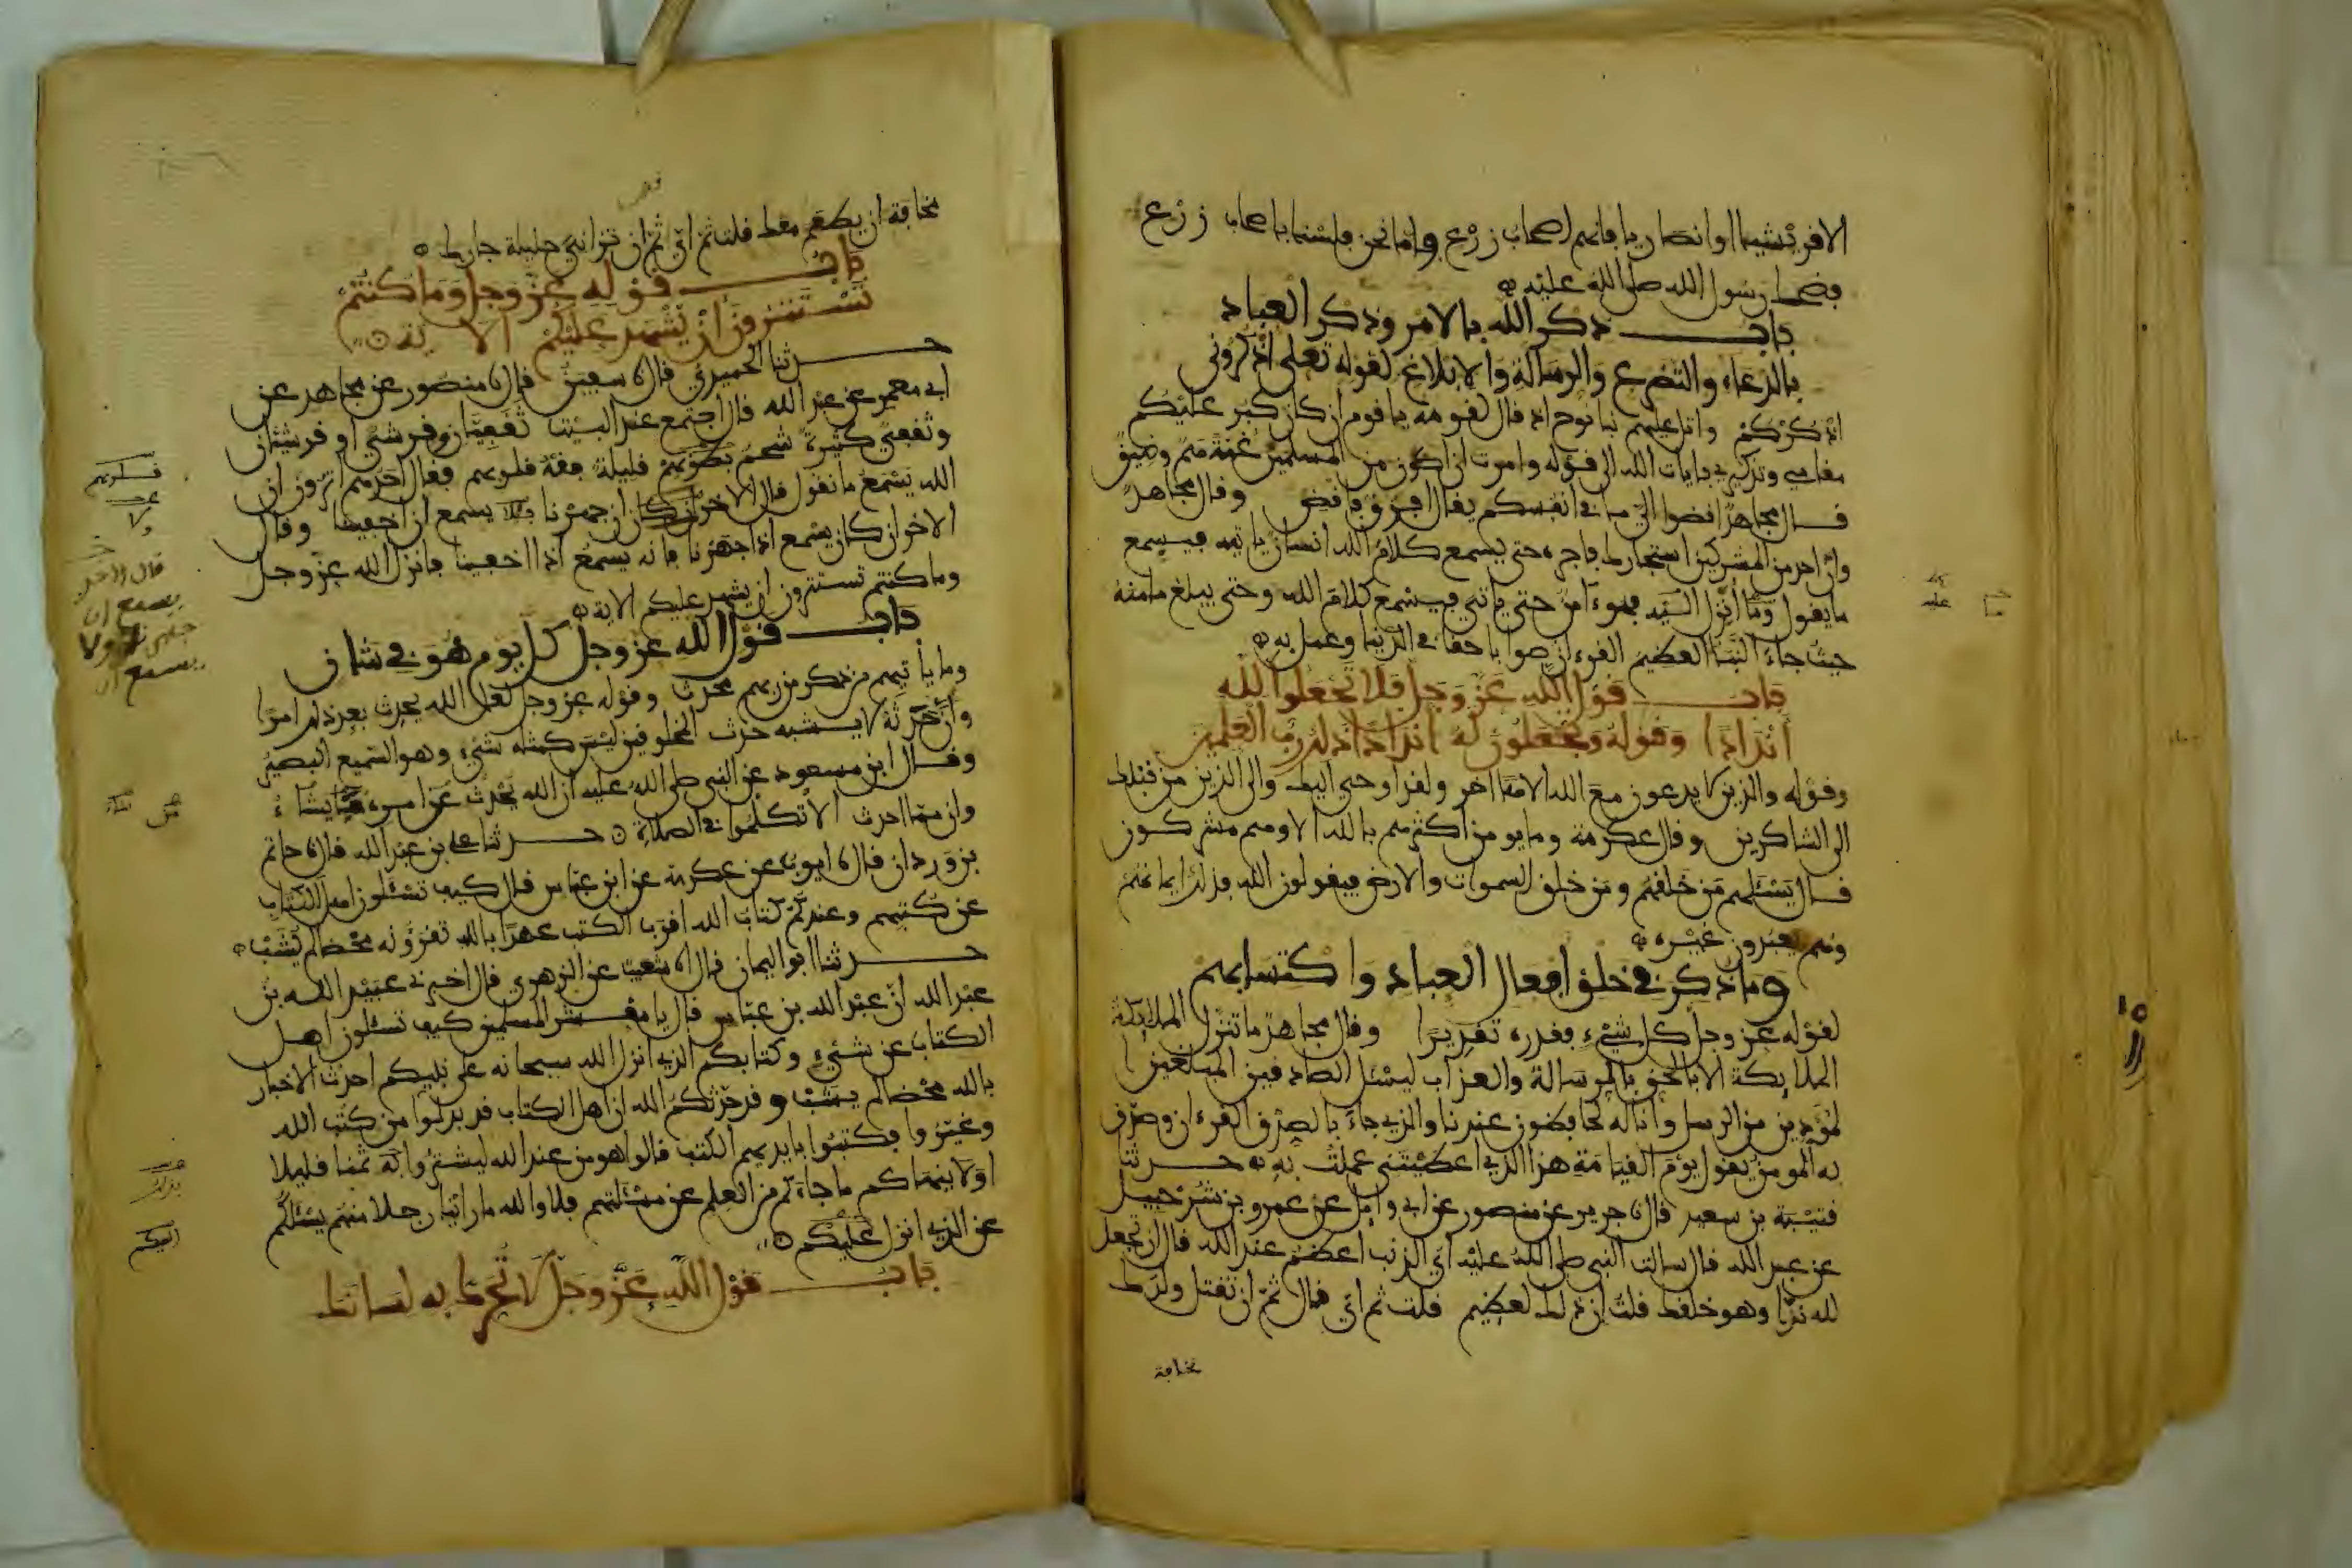 الا قرشيا او انصاريا فانهم اصحاب زرع واما نحن فلسنا باصحاب زرع
فضحك رسول الله صلى الله عليه
باب ذكر الله بالامر وذكر العباد
بالدعاء والتضرع والرسالة والابلاغ لقوله تعلى اذكروني
اذكركم واتل عليهم نبا نوح اذ قال لقومه يا قوم ان كان كبر عليكم
مقامي وتذكيري بايات الله الى قوله وامرت ان اكون من المسلمين غمة هم وضيق
قال مجاهد اقضوا الي ما في انفسكم يقال افرق فاقض وقال مجاهد
وان احد من المشركين استجارك فاجره حتى يسمع كلام الله انسان ياتيه فيسمع
ما يقول وما انزل اليه فهو ءامن حتى ياتيه فيسمع كلام الله وحتى يبلغ مامنه
حيث جاء النبا العظيم القرءان صوابا حقا في الدنيا وعمل به
باب قول الله عز وجل فلا تجعلوا لله
اندادا وقوله وتجعلون له اندادا ذلك رب العلمين
وقوله والذين لا يدعون مع الله الاها اخر ولقد اوحي اليك والى الذين من قبلك
الى الشاكرين وقال عكرمة وما يومن اكثرهم بالله الا وهم مشركون
قال تسئلهم من خلقهم ومن خلق السموات والارض فيقولون الله فذلك ايمانهم
وهم يعبدون غيره
وما ذكر في خلق افعال العباد واكتسابهم
لقوله عز وجل كل شيء فقدره تقديرا وقال مجاهد ما تنزل الملائكة
الملائكة الا بالحق بالرسالة والعذاب ليسئل الصادقين المبلغين
المؤدين من الرسل وانا له لحافظون عندنا والذي جاء بالصدق القرءان وصدق
به المومن يقول يوم القيامة هذا الذي اعطيتني عملت به حدثنا
قتيبة بن سعيد قال نا جرير عن منصور عن ابي وائل عن عمرو بن شرحبيل
عن عبد الله قال سالت النبي صلى الله عليه اي الذنب اعظم عند الله قال ان تجعل
لله ندا وهو خلقك قلت ان ذلك لعظيم قلت ثم اي قال ثم ان تقتل ولدك
مخافة
مخافة ان يطعم معك قلت ثم اي ثم ان تزاني حليلة جارك
باب قوله عز وجل وما كنتم
تستترون ان يشهد عليكم الاية
حدثنا الحميدي قال نا سفين قال نا منصور عن مجاهد عن
ابي معمر عن عبد الله قال اجتمع عند البيت ثقفيان وقرشي او قرشيان
وثقفي كثيرة شحم بطونهم قليلة فقه قلوبهم فقال احدهم اترون ان
الله يسمع ما نقول قال الاخر ان كان ان جهرنا فلا يسمع ان اخفينا وقال
الاخر ان كان يسمع اذا جهرنا فانه يسمع اذا اخفينا فانزل الله عز وجل
وما كنتم تستترون ان يشهد عليكم الاية
باب قول الله عز وجل كل يوم هو في شان
وما ياتيهم من ذكر من ربهم محدث وقوله عز وجل لعل الله يحدث بعد ذلك امرا
وان حدثه لا يشبه حدث المخلوقين ليس كمثله شيء وهو السميع البصير
وقال ابن مسعود عن النبي صلى الله عليه ان الله يحدث من امره ما يشاء
وان مما احدث الا تكلموا في الصلاة حدثنا علي بن عبد الله قال نا حاتم
بن وردان قال نا ايوب عن عكرمة عن ابن عباس قال كيف تسئلون اهل الكتاب
عن كتبهم وعندكم كتاب الله اقرب الكتب عهدا بالله تقرؤنه محضا لم يشب
حدثنا ابو اليمان قال نا شعيب عن الزهري قال اخبرني عبيد الله بن
عبد الله ان عبد الله بن عباس قال يا معشر المسلمين كيف تسئلون اهل
الكتاب عن شيء وكتابكم الذي انزل الله سبحانه على نبيكم احدث الاخبار
بالله محضا لم يشب وقد حدثكم الله ان اهل الكتاب قد بدلوا من كتب الله
وغيروا فكتبوا بايديهم الكتب قالوا هو من عند الله ليشتروا به ثمنا قليلا
اولا ينهاكم ما جاءكم من العلم عن مسئلتهم فلا والله ما راينا رجلا منهم يسئلكم
عن الذي انزل عليكم
باب قول الله عز وجل لا تحرك به لسانك
قلوبهم
قال الاخر
يسمع ان
جهرنا ولا
يسمع ان
بذلك
اليكم